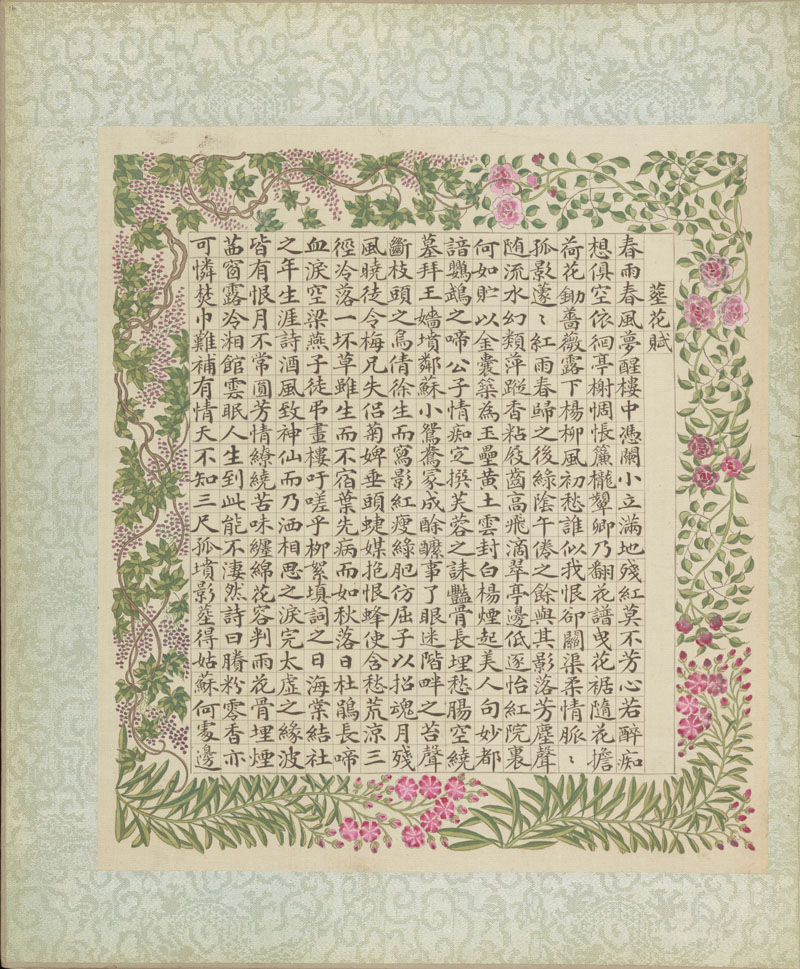 塟花賦
春雨春風夢醒樓中憑闌小立滿地殘紅莫不芳心若醉痴
想俱空依徊亭榭惆悵簾櫳顰卿乃翻花譜曳花裾隨花擔
荷花鋤薔薇露下楊柳風初愁誰似我恨卻關渠柔情脈〻
孤影蘧〻紅雨春歸之後綠陰午倦之餘與其影落芳塵聲
随流水幻類萍蹤香粘屐齒高飛滴翠亭邊低逐怡紅院裏
何如貯以金囊築為玉壘黃土雲封白楊煙起美人句妙都
諳鸚鵡之啼公子情痴定撰芙蓉之誄豔骨長埋愁腸空繞
墓拜王嬙墳鄰蘇小鴛鴦冢成酴醿事了眼迷階畔之苔聲
斷枝頭之鳥倩徐生而寫影紅瘦綠肥仿屈子以招魂月殘
風曉徒令梅兄失侶菊婢垂頭蜨媒抱恨蜂使含愁荒涼三
徑冷落一坏草雖生而不宿葉先病而如秋落日杜鵑長啼
血淚空梁燕子徒弔畫樓吁嗟乎柳絮填詞之日海棠結社
之年生涯詩酒風致神仙而乃洒相思之淚完太虛之緣波
皆有恨月不常圓芳情繚繞苦味纏綿花容判雨花骨埋煙
茁窗露冷湘館雲眠人生到此能不淒然詩曰賸粉零香亦
可憐焚巾難補有情天不知三尺孤墳影塟得姑蘇何處邊